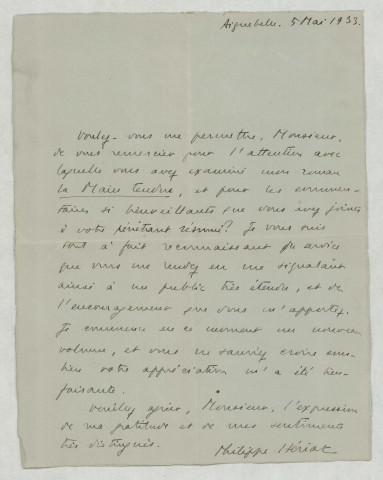 Aiguebelle. 5 Mai 1933.
Voulez-vous me permettre, Monsieur,
de vous remercier pour l'attention avec
laquelle vous avez examiné mon roman
la Main tendue, et pour les commen-
taires si bienveillants que vous avez joints
à votre pénétrant résumé? Je vous suis
tout à fait reconnaissant du service
que vous me rendez en me signalant
ainsi à un public très étendu, et de
l'encouragement que vous m'apportez.
Je commence en ce moment un nouveau
volume, et vous ne sauriez croire com-
bien votre appréciation m'a été bien-
faisante.
Veuillez agréer, Monsieur, l'expression
de ma gratitude et de mes sentiments
très distingués.
Philippe Hériat